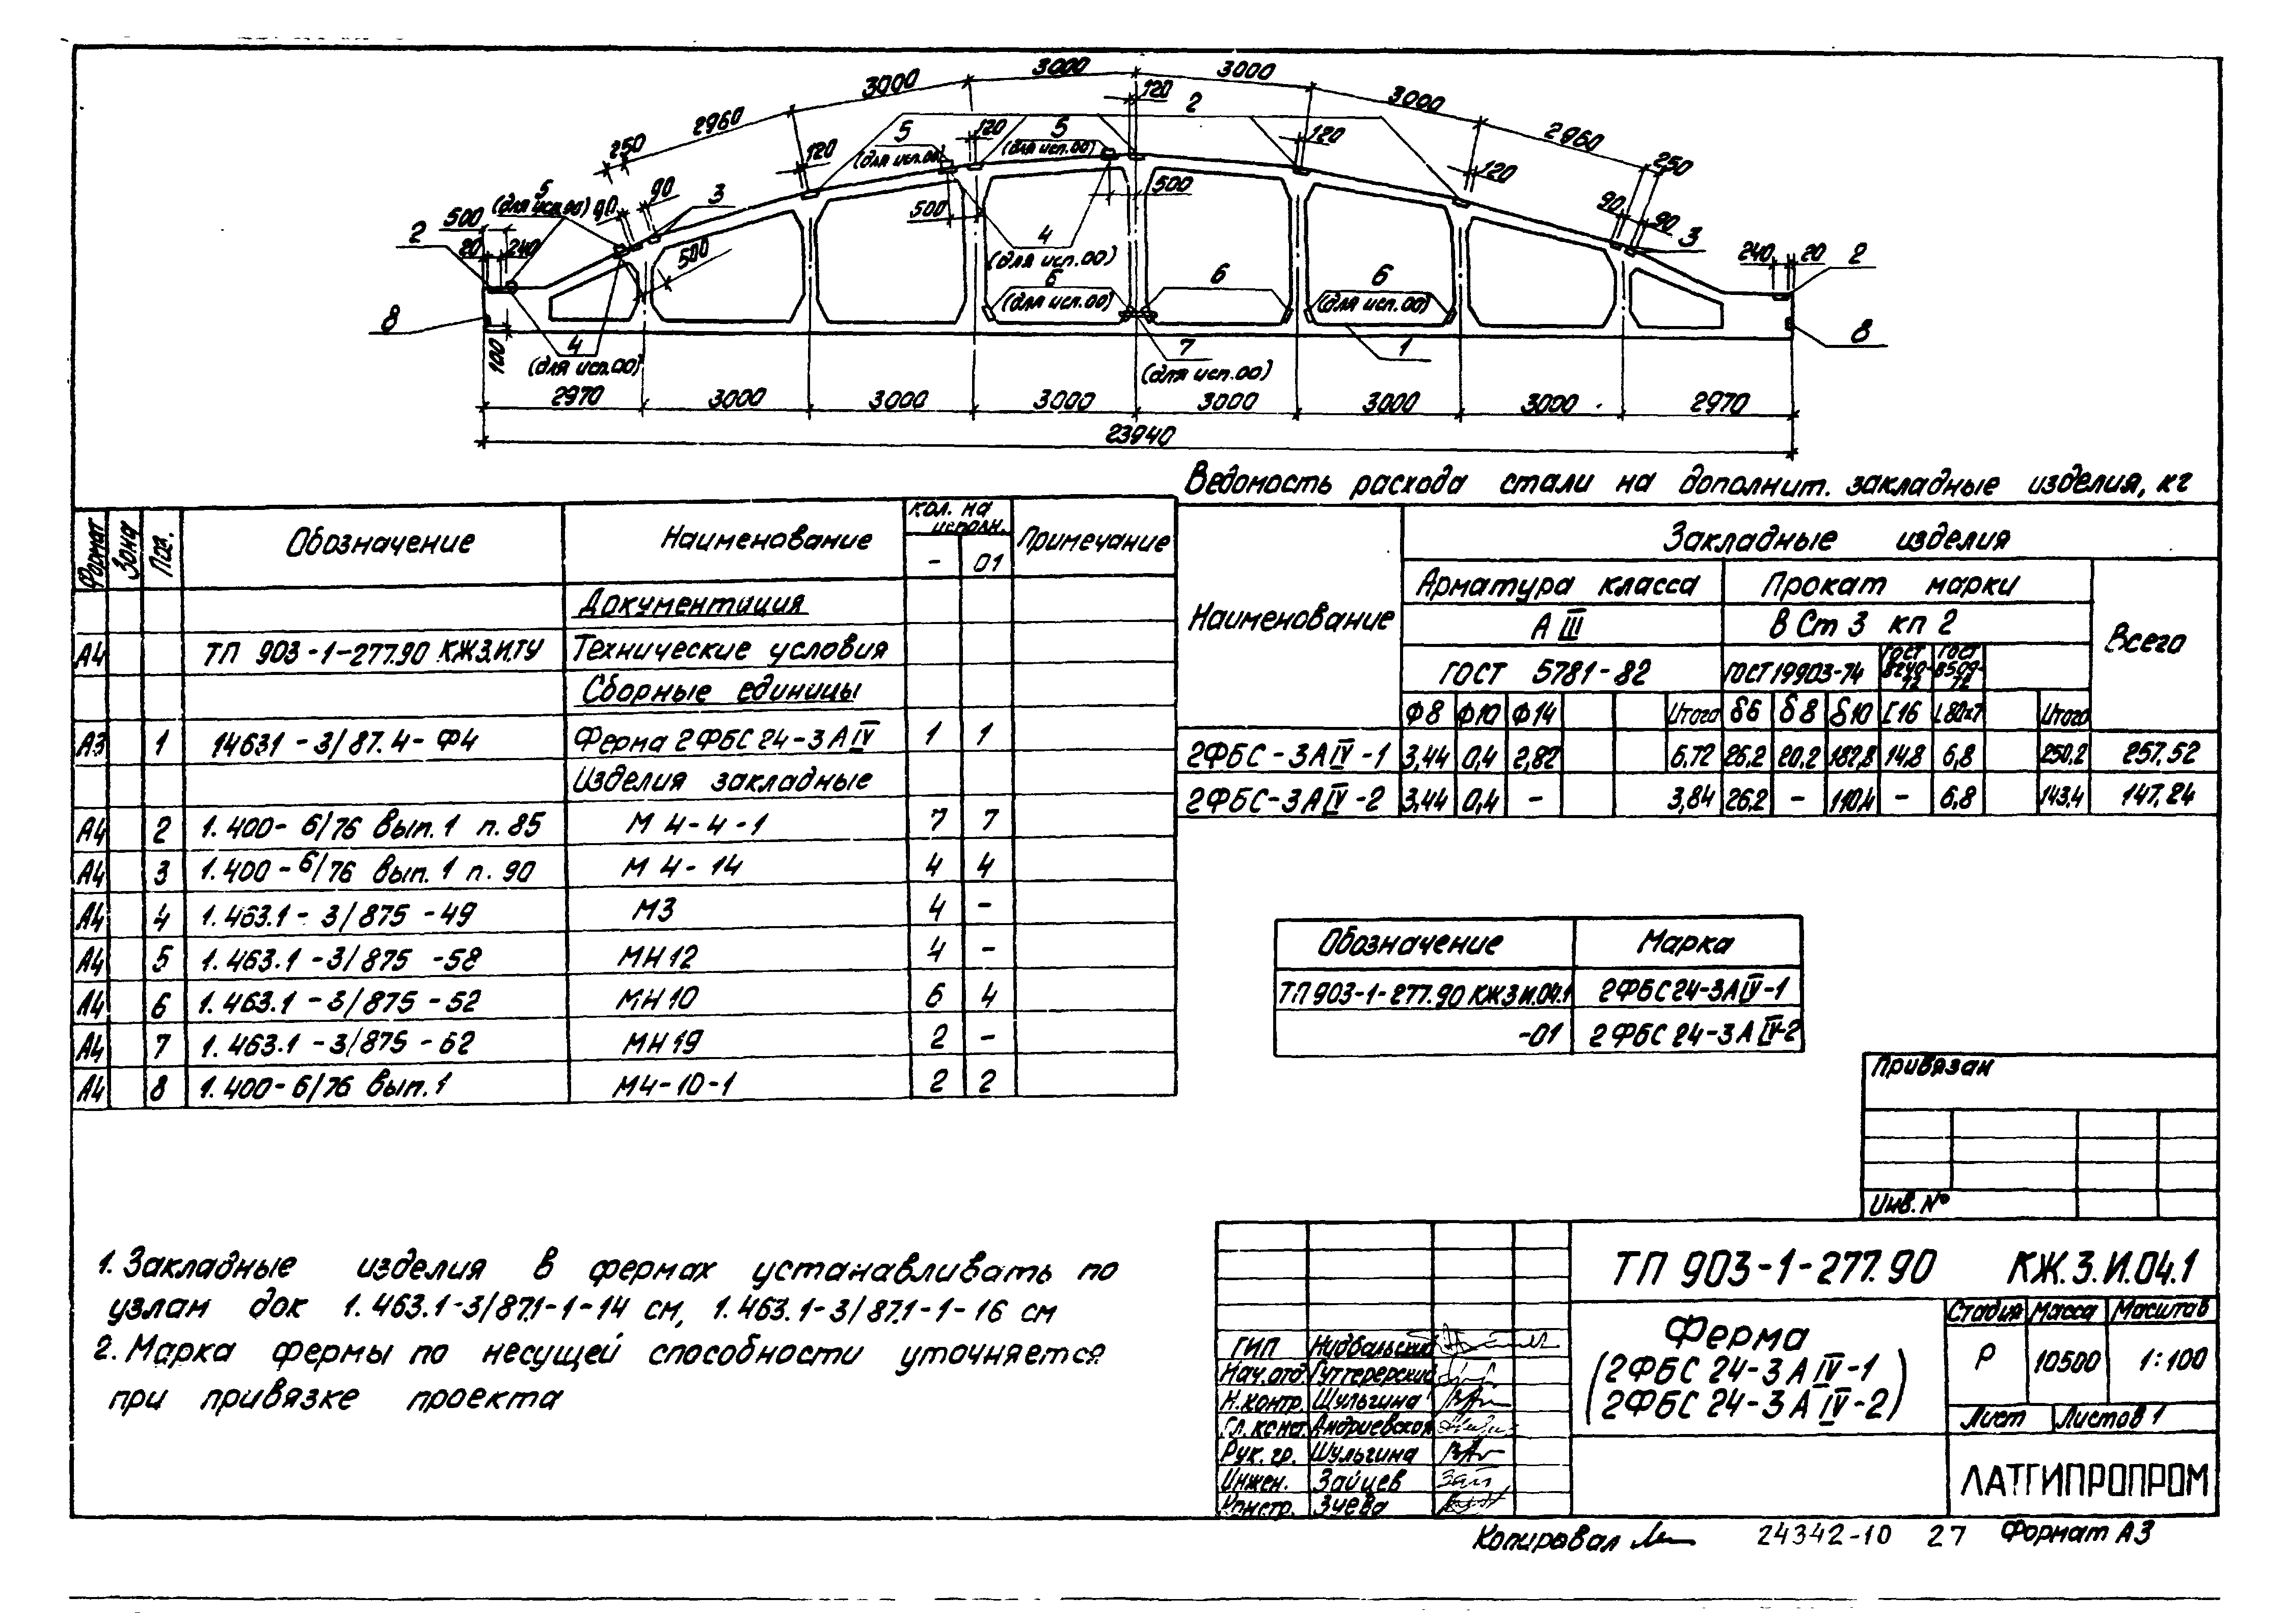 3000 3000 3000 3000
2960 2960
250 120 120 120 120 120 250
5 5 2
(для исп.00) (для исп.00)
5 (для исп.00) 90 90 3 90 90 3
500 500 500 500
2 20 240 240 20 2
4 (для исп.00)
6 (для исп.00) 6 6 (для исп.00)
8 100 4 (для исп.00) 7 (для исп.00) 1 8
2970 3000 3000 3000 3000 3000 3000 2970
23940
Ведомость расхода стали на дополнит. закладные изделия, кг
Формат Зона Поз. Обозначение Наименование Кол. на исполн. Примечание
- 01
Документация
А4 ТП 903-1-277.90 КЖ3.И.ТУ Технические условия
Сборные единицы
А3 1 14631-3/87.4-Ф4 Ферма 2ФБС 24-3АIV 1 1
Изделия закладные
А4 2 1.400-6/76 вып.1 п.85 М 4-4-1 7 7
А4 3 1.400-6/76 вып.1 п.90 М 4-14 4 4
А4 4 1.463.1-3/875-49 М3 4 -
А4 5 1.463.1-3/875-58 МН12 4 -
А4 6 1.463.1-3/875-52 МН10 6 4
А4 7 1.463.1-3/875-62 МН19 2 -
А4 8 1.400-6/76 вып.1 М4-10-1 2 2
Наименование Закладные изделия
Арматура класса Прокат марки Всего
А III В Ст 3 кп 2
ГОСТ 5781-82 ГОСТ 19903-74 ГОСТ 8240-72 ГОСТ 8509-72
Ф8 Ф10 Ф14 Итого δ6 δ8 δ10 [16 L80х7 Итого
2ФБС-3АIV-1 3,44 0,4 2,82 6,72 26,2 20,2 182,8 14,8 6,8 250,2 257,52
2ФБС-3АIV-2 3,44 0,4 - 3,84 26,2 - 110,4 - 6,8 143,4 147,24
Обозначение Марка
ТП 903-1-277.90 КЖ3И.04.1 2ФБС24-3АIV-1
-01 2ФБС 24-3АIV-2
Привязан
Инв. №
1. Закладные изделия в фермах устанавливать по
узлам док 1.463.1-3/87.1-1-14 см, 1.463.1-3/87.1-1-16 см
2. Марка фермы по несущей способности уточняется
при привязке проекта
ТП 903-1-277.90 КЖ.3.И.04.1
Ферма
(2ФБС 24-3 А IV-1
2ФБС 24-3 А IV-2)
Стадия Масса Масштаб
Р 10500 1:100
Лист Листов 1
ЛАТГИПРОПРОМ
ГИП Нидбальский
Нач.отд. Гуттерерский
Н.контр. Шульгина
Гл.конст. Андриевская
Рук. гр. Шульгина
Инжен. Зайцев
Констр. Зуева
Копировал 24342-10 27 Формат А3